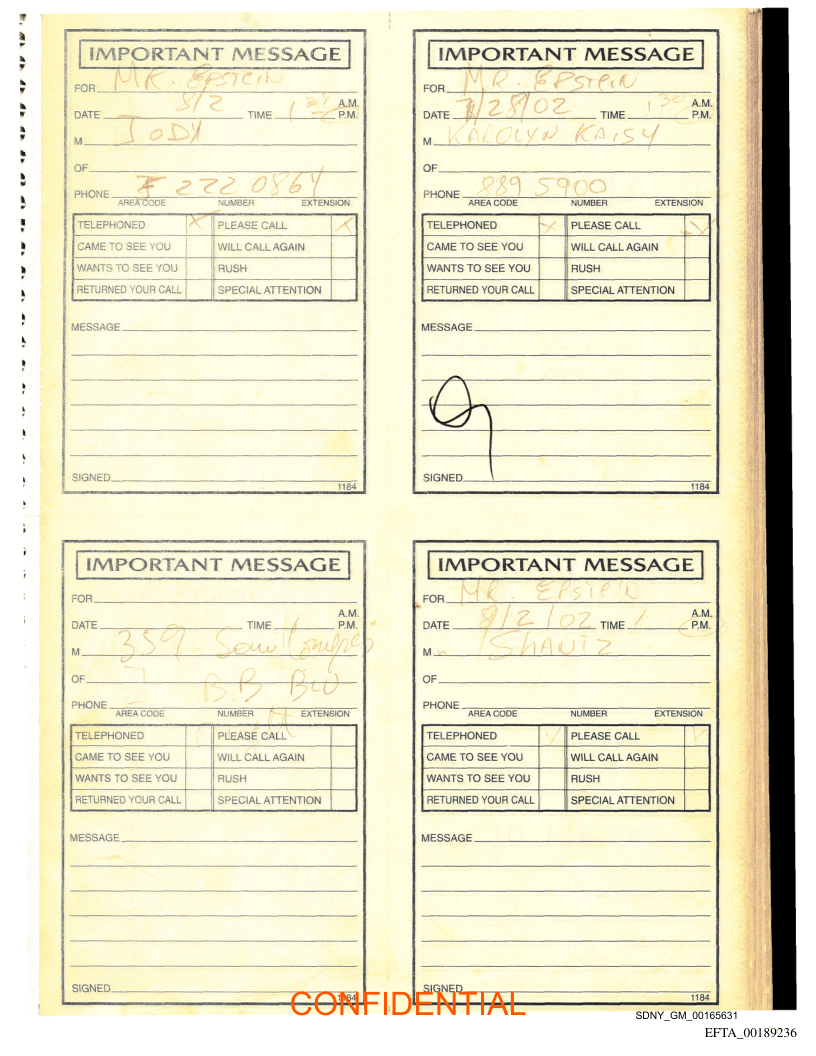 IMPORTANT MESSAGE
FOR MR. EPSTEIN
DATE 8/2 TIME 1 A.M. P.M.
M JODY
OF
PHONE 222 0864
AREA CODE NUMBER EXTENSION
TELEPHONED X PLEASE CALL X
CAME TO SEE YOU WILL CALL AGAIN
WANTS TO SEE YOU RUSH
RETURNED YOUR CALL SPECIAL ATTENTION
MESSAGE
SIGNED
1184
IMPORTANT MESSAGE
FOR MR. EPSTEIN
DATE 7/28/02 TIME 1 30 A.M. P.M.
M KAROLYN KAISY
OF
PHONE 889 5900
AREA CODE NUMBER EXTENSION
TELEPHONED X PLEASE CALL X
CAME TO SEE YOU WILL CALL AGAIN
WANTS TO SEE YOU RUSH
RETURNED YOUR CALL SPECIAL ATTENTION
MESSAGE
SIGNED
1184
IMPORTANT MESSAGE
FOR
DATE TIME A.M. P.M.
M 359 South
OF BB
PHONE
AREA CODE NUMBER EXTENSION
TELEPHONED PLEASE CALL
CAME TO SEE YOU WILL CALL AGAIN
WANTS TO SEE YOU RUSH
RETURNED YOUR CALL SPECIAL ATTENTION
MESSAGE
SIGNED
1184
IMPORTANT MESSAGE
FOR MR. EPSTEIN
DATE 8/2/02 TIME A.M. P.M.
M SHANTZ
OF
PHONE
AREA CODE NUMBER EXTENSION
TELEPHONED X PLEASE CALL
CAME TO SEE YOU WILL CALL AGAIN
WANTS TO SEE YOU RUSH
RETURNED YOUR CALL SPECIAL ATTENTION
MESSAGE
SIGNED
1184
CONFIDENTIAL
SDNY_GM_00165631
EFTA_00189236